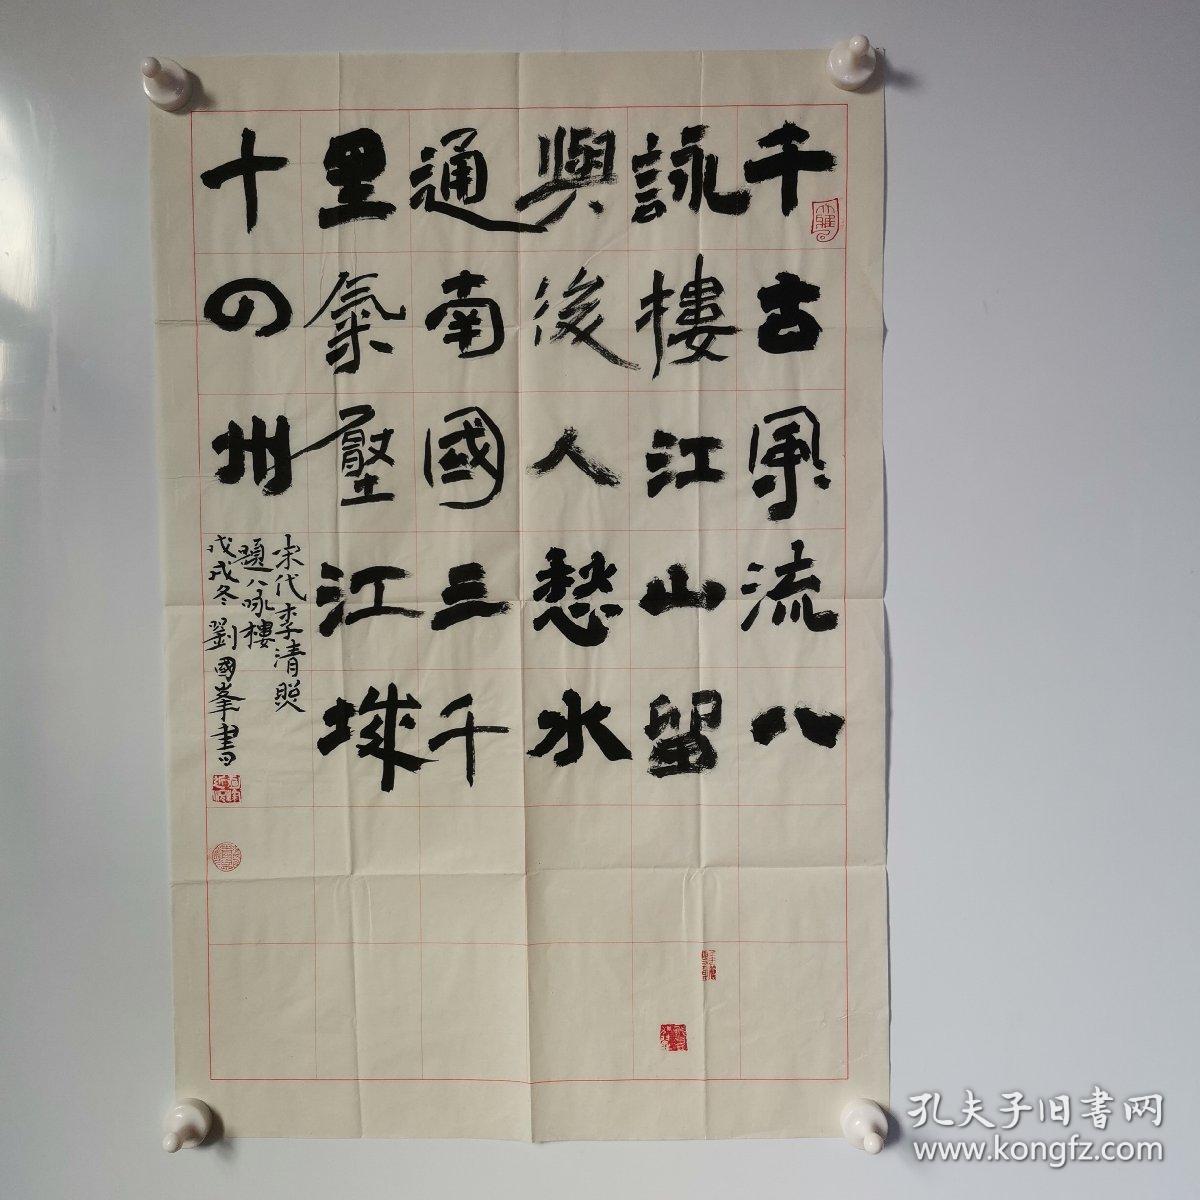 千古風流八
詠樓江山留
與後人愁水
通南國三千
里氣壓江城
十四州
宋代李清照
題八咏樓
戊戌冬劉國峯書
孔夫子旧書网
www.kongfz.com